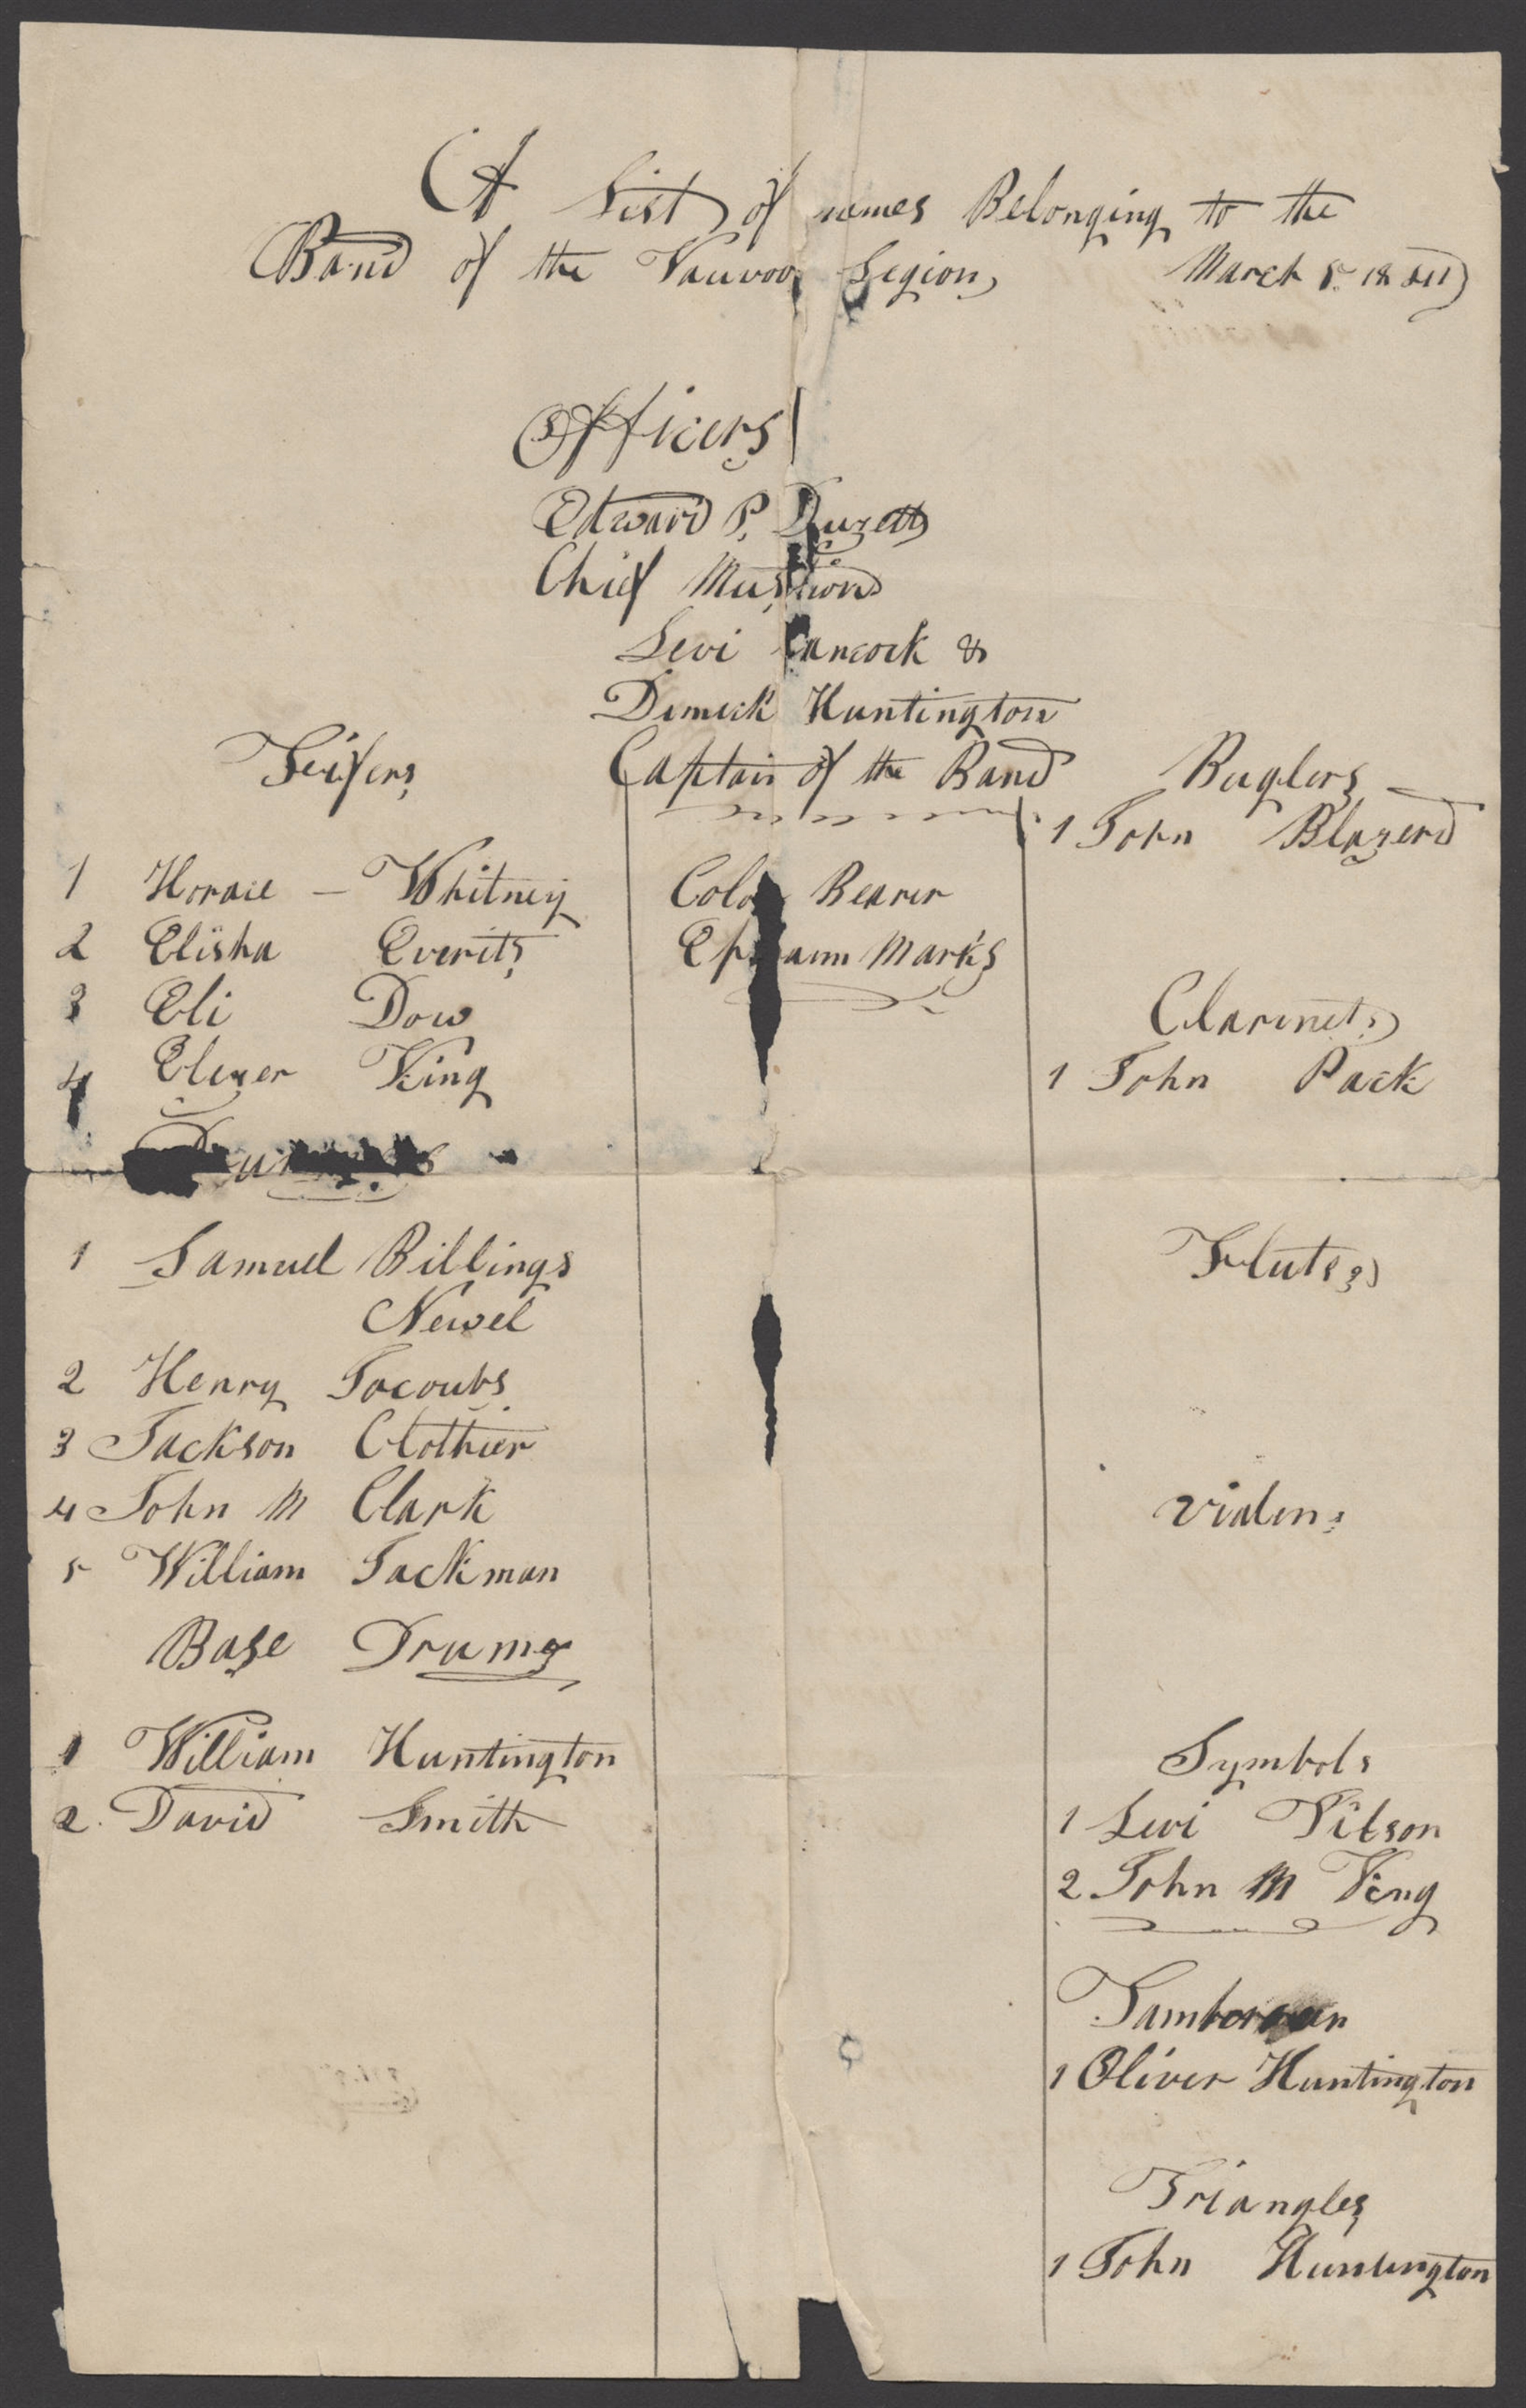 A List of names Belonging to the
Band of the Nauvoo Legion, March 5. 1841
Officers
Edward P. Duzett
Chief Musicion
Levi Hancock &
Dimick Huntington
Captain of the Band
Color Bearer
Ephraim Marks
Feifers
1 Horace – Whitney
2 Elisha Everits
3 Eli Dow
4 Elezer King
Drummers
1 Samuel Billings
Newel
2 Henry Jacoubs
3 Jackson Clothier
4 John M Clark
5 William Jackman
Base Drums
1 William Huntington
2. David Smith
Buglers
1 John Blazerd
Clarinets
1 John Pack
Flutes
Violins
Symbols
1 Levi
2 John M King
1 Oliver Huntington
Triangles
1 John Huntington